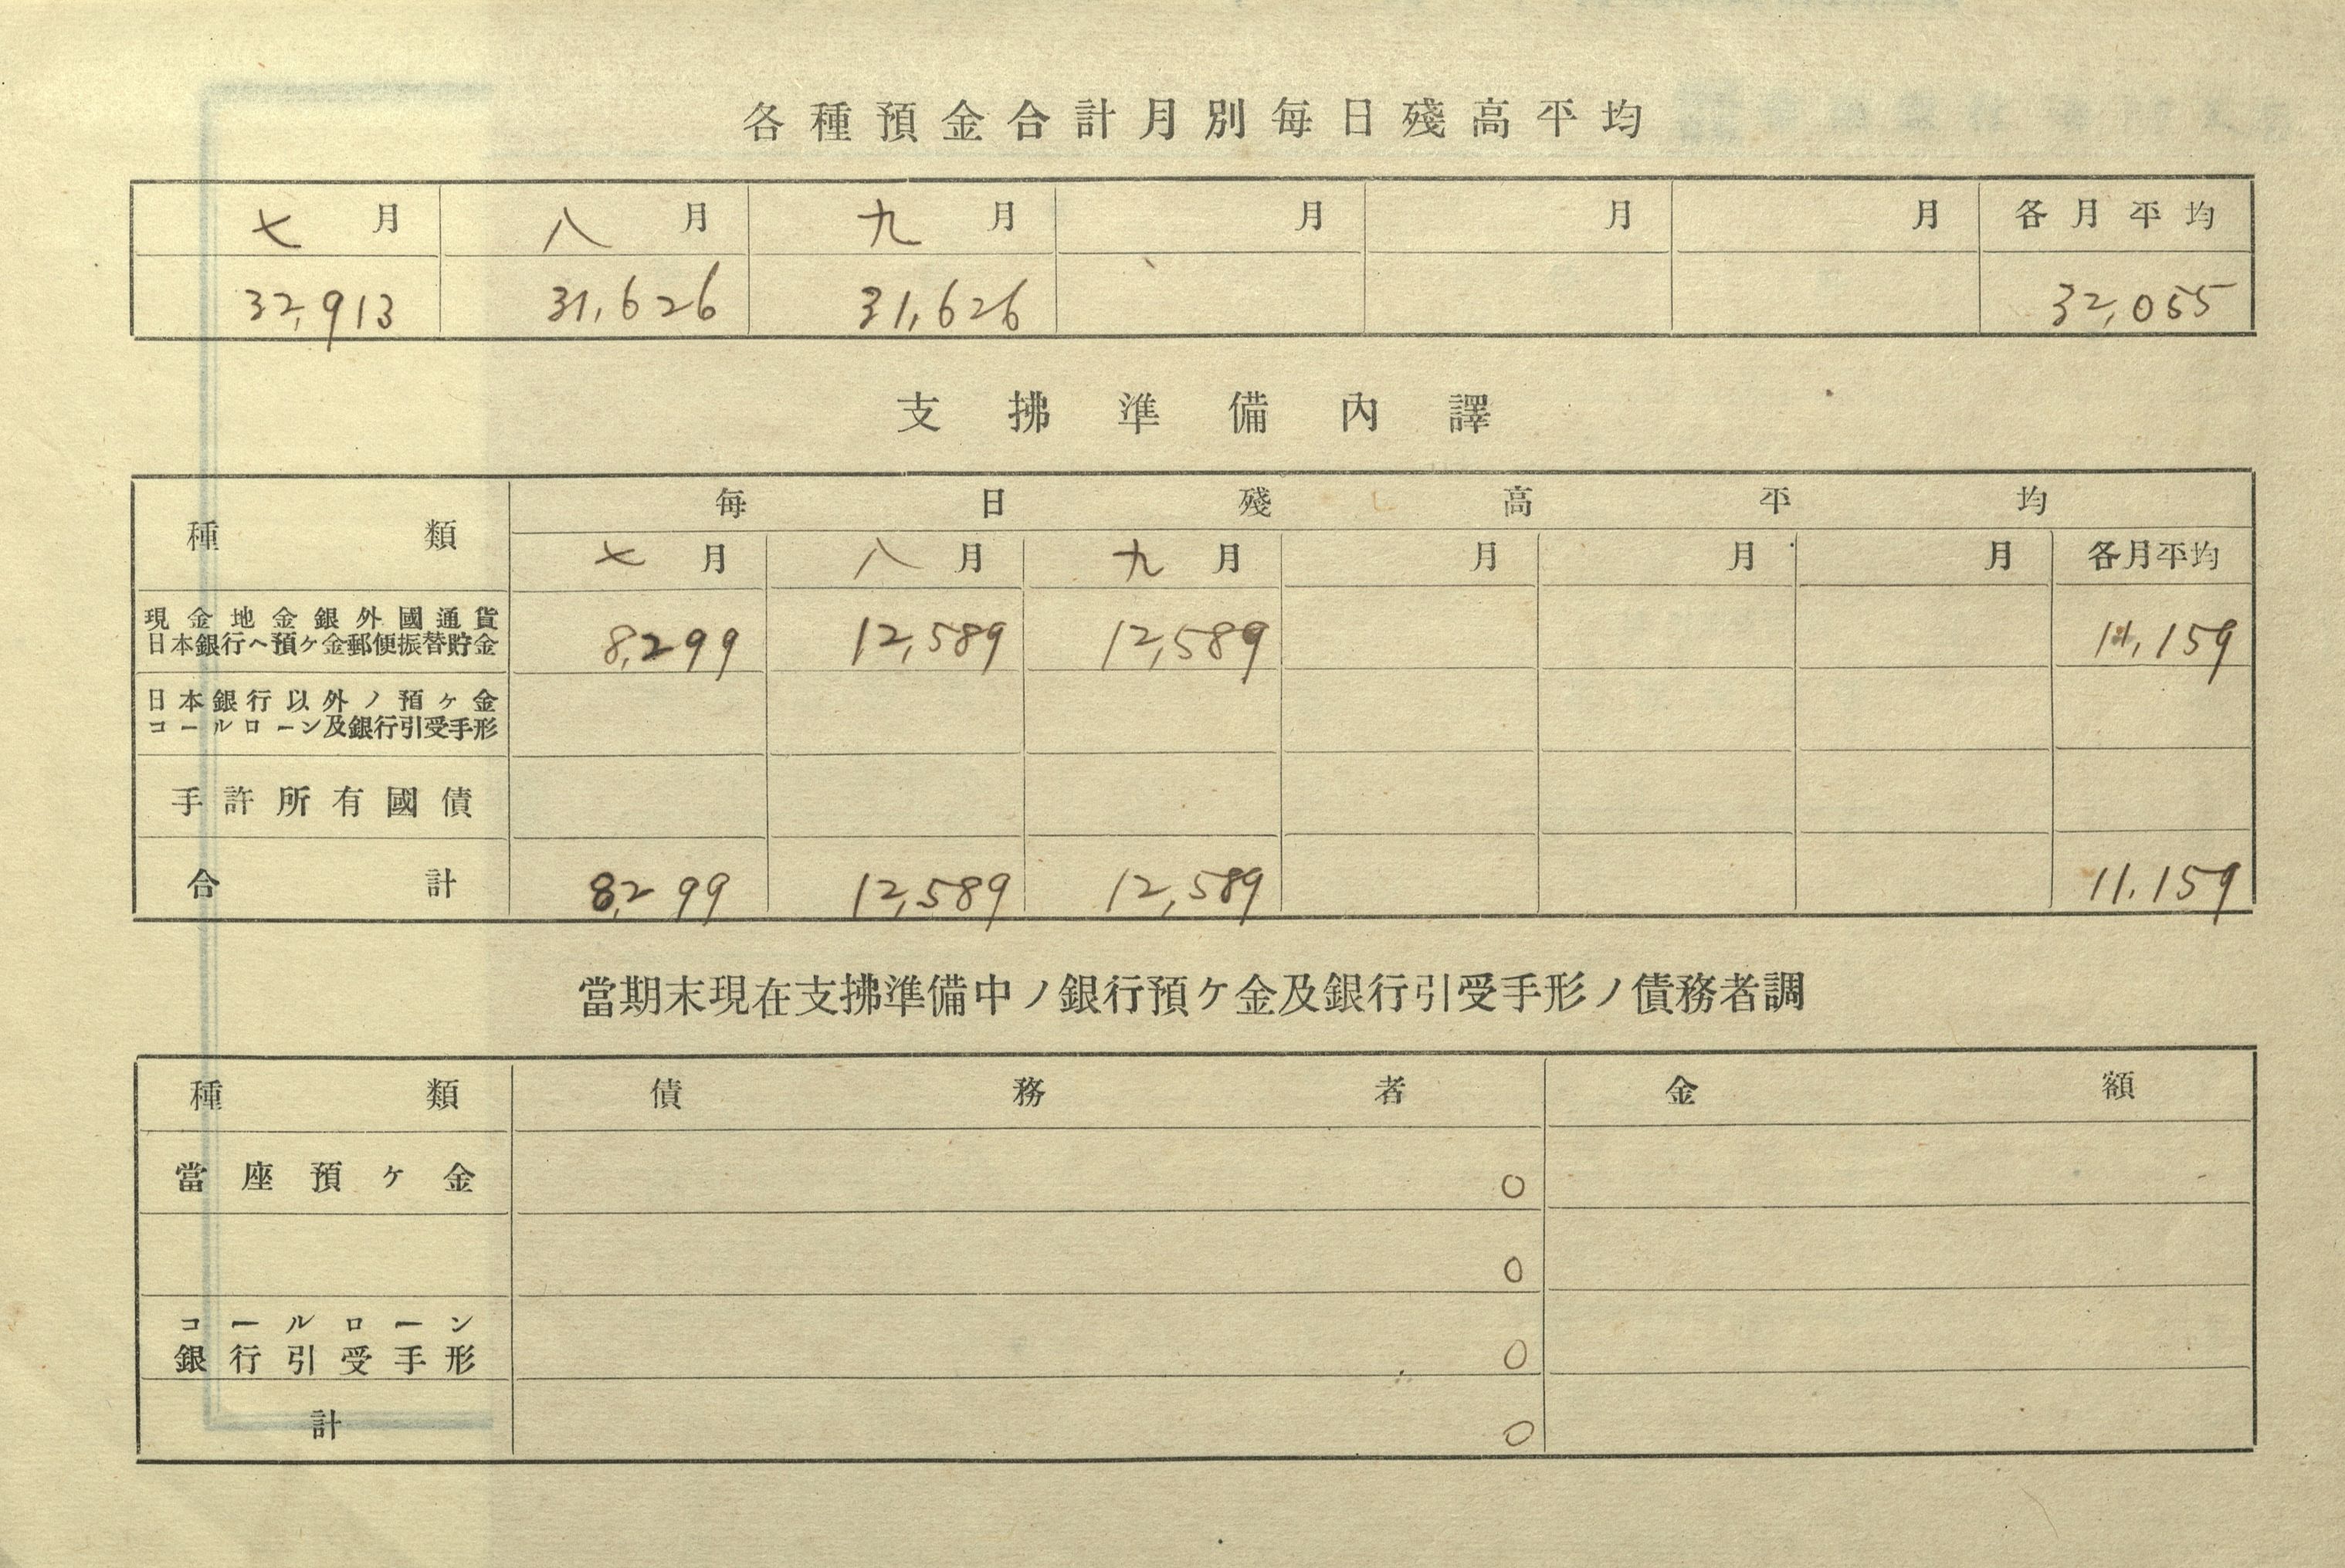 各種預金合計月別每日殘高平均
七月 八月 九月 月 月 月 各月平均
32,913 31,626 31,626 32,055
支拂準備內譯
種類 每日殘高平均
七月 八月 九月 月 月 月 各月平均
現金地金銀外國通貨
日本銀行ヘ預ケ金郵便振替貯金 8,299 12,589 12,589 11,159
日本銀行以外ノ預ケ金
コールローン及銀行引受手形
手許所有國債
合計 8,299 12,589 12,589 11,159
當期末現在支拂準備中ノ銀行預ケ金及銀行引受手形ノ債務者調
種類 債務者 金額
當座預ケ金 0
0
コールローン
銀行引受手形 0
計 0